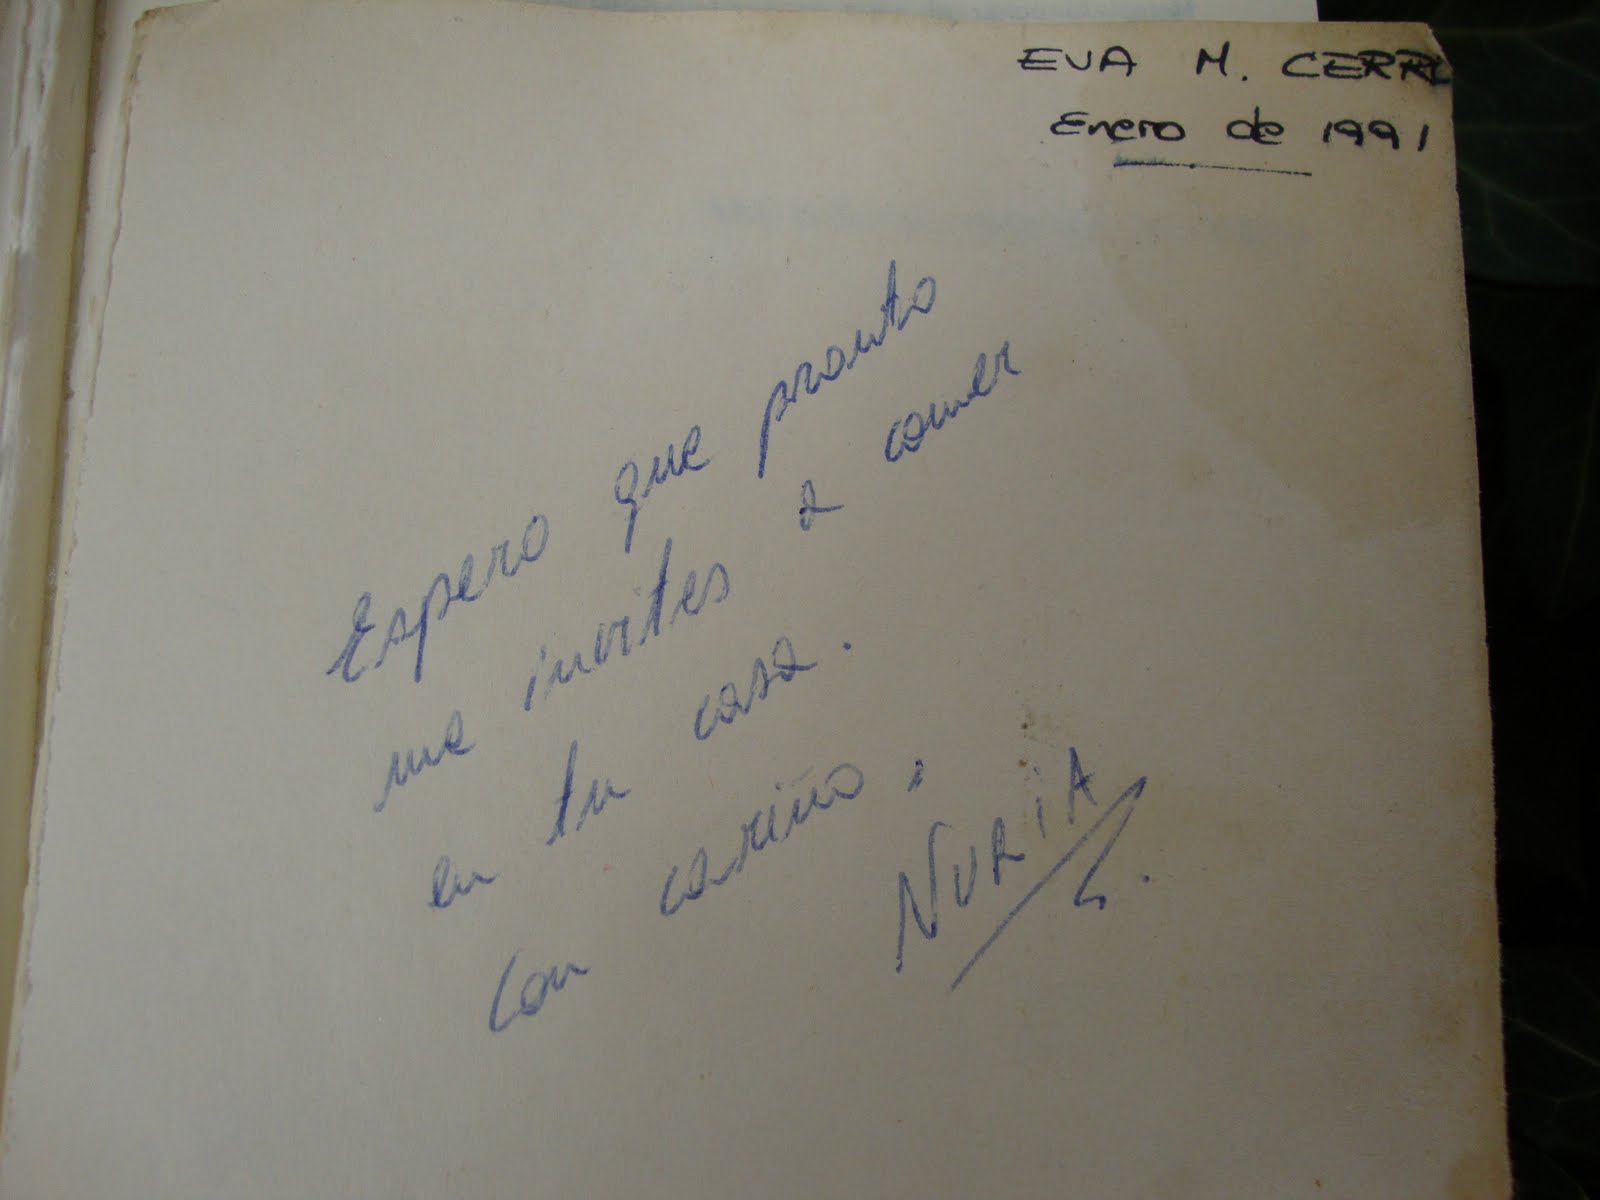 EVA M. CERR
Enero de 1991
Espero que pronto
me invites a comer
en tu casa.
Con cariño,
NURIA